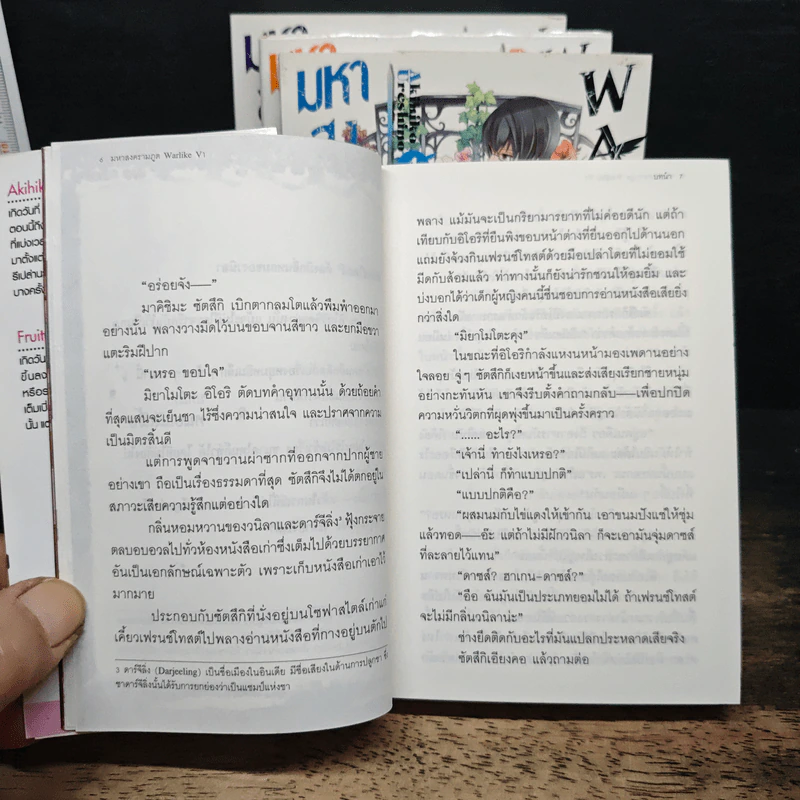 มหา
Akihiko
Ureshino
WA
Akihik
เกิดวันที่
ตอนนี้ถึง
ที่แบ่งเวล
มาตั้งแต่
รีเปล่าน
บางครั้ง
Fruity
เกิดวัน
ขึ้นลง
หรือร
เต็มเปี่
นั้น แต่
๖ มหาสงครามภูต Warlike V1
“อร่อยจัง——”
มาคิชิมะ ซัตสึกิ เบิกตากลมโตแล้วพึมพำออกมา
อย่างนั้น พลางวางมีดไว้บนขอบจานสีขาว และยกมือขวา
แตะริมฝีปาก
“เหรอ ขอบใจ”
มิยาโมโตะ อิโอริ ตัดบทคำอุทานนั้น ด้วยถ้อยคำ
ที่สุดแสนจะเย็นชา ไร้ซึ่งความน่าสนใจ และปราศจากความ
เป็นมิตรสิ้นดี
แต่การพูดจาขวานผ่าซากที่ออกจากปากผู้ชาย
อย่างเขา ถือเป็นเรื่องธรรมดาที่สุด ซัตสึกิจึงไม่ได้ตกอยู่ใน
สภาวะเสียความรู้สึกแต่อย่างใด
กลิ่นหอมหวานของวนิลาและดาร์จีลิ่ง³ ฟุ้งกระจาย
ตลบอบอวลไปทั่วห้องหนังสือเก่าซึ่งเต็มไปด้วยบรรยากาศ
อันเป็นเอกลักษณ์เฉพาะตัว เพราะเก็บหนังสือเก่าเอาไว้
มากมาย
ประกอบกับซัตสึกิที่นั่งอยู่บนโซฟาสไตล์เก่าแก่
เคี้ยวเฟรนช์โทสต์ไปพลางอ่านหนังสือที่กางอยู่บนตักไป
3 ดาร์จีลิ่ง (Darjeeling) เป็นชื่อเมืองในอินเดีย มีชื่อเสียงในด้านการปลูกชา ซึ่ง
ชาดาร์จีลิ่งนั้นได้รับการยกย่องว่าเป็นแชมป์แห่งชา
บทนำ ๗
พลาง แม้มันจะเป็นกริยามารยาทที่ไม่ค่อยดีนัก แต่ถ้า
เทียบกับอิโอริที่ยืนพิงขอบหน้าต่างที่ยื่นออกไปด้านนอก
แถมยังจ้วงกินเฟรนช์โทสต์ด้วยมือเปล่าโดยที่ไม่ยอมใช้
มีดกับส้อมแล้ว ท่าทางนั้นก็ยังน่ารักชวนให้อมยิ้ม และ
บ่งบอกได้ว่าเด็กผู้หญิงคนนี้ชื่นชอบการอ่านหนังสือเสียยิ่ง
กว่าสิ่งใด
“มิยาโมโตะคุง”
ในขณะที่อิโอริกำลังแหงนหน้ามองเพดานอย่าง
ใจลอย จู่ๆ ซัตสึกิก็เงยหน้าขึ้นและส่งเสียงเรียกชายหนุ่ม
อย่างกะทันหัน เขาจึงรีบตั้งคำถามกลับ——เพื่อปกปิด
ความหวั่นวิตกที่ผุดพุ่งขึ้นมาเป็นครั้งคราว
“...... อะไร?”
“เจ้านี่ ทำยังไงเหรอ?”
“เปล่านี่ ก็ทำแบบปกติ”
“แบบปกติคือ?”
“ผสมนมกับไข่แดงให้เข้ากัน เอาขนมปังแช่ให้ชุ่ม
แล้วทอด——อ๊ะ แต่ถ้าไม่มีฝักวนิลา ก็จะเอามันจุ่มดาซส์
ที่ละลายไว้แทน”
“ดาซส์? ฮาเกน-ดาซส์?”
“อือ ฉันมันเป็นประเภทยอมไม่ได้ ถ้าเฟรนช์โทสต์
จะไม่มีกลิ่นวนิลาน่ะ”
ช่างยึดติดกับอะไรที่มันแปลกประหลาดเสียจริง
ซัตสึกิเอียงคอ แล้วถามต่อ